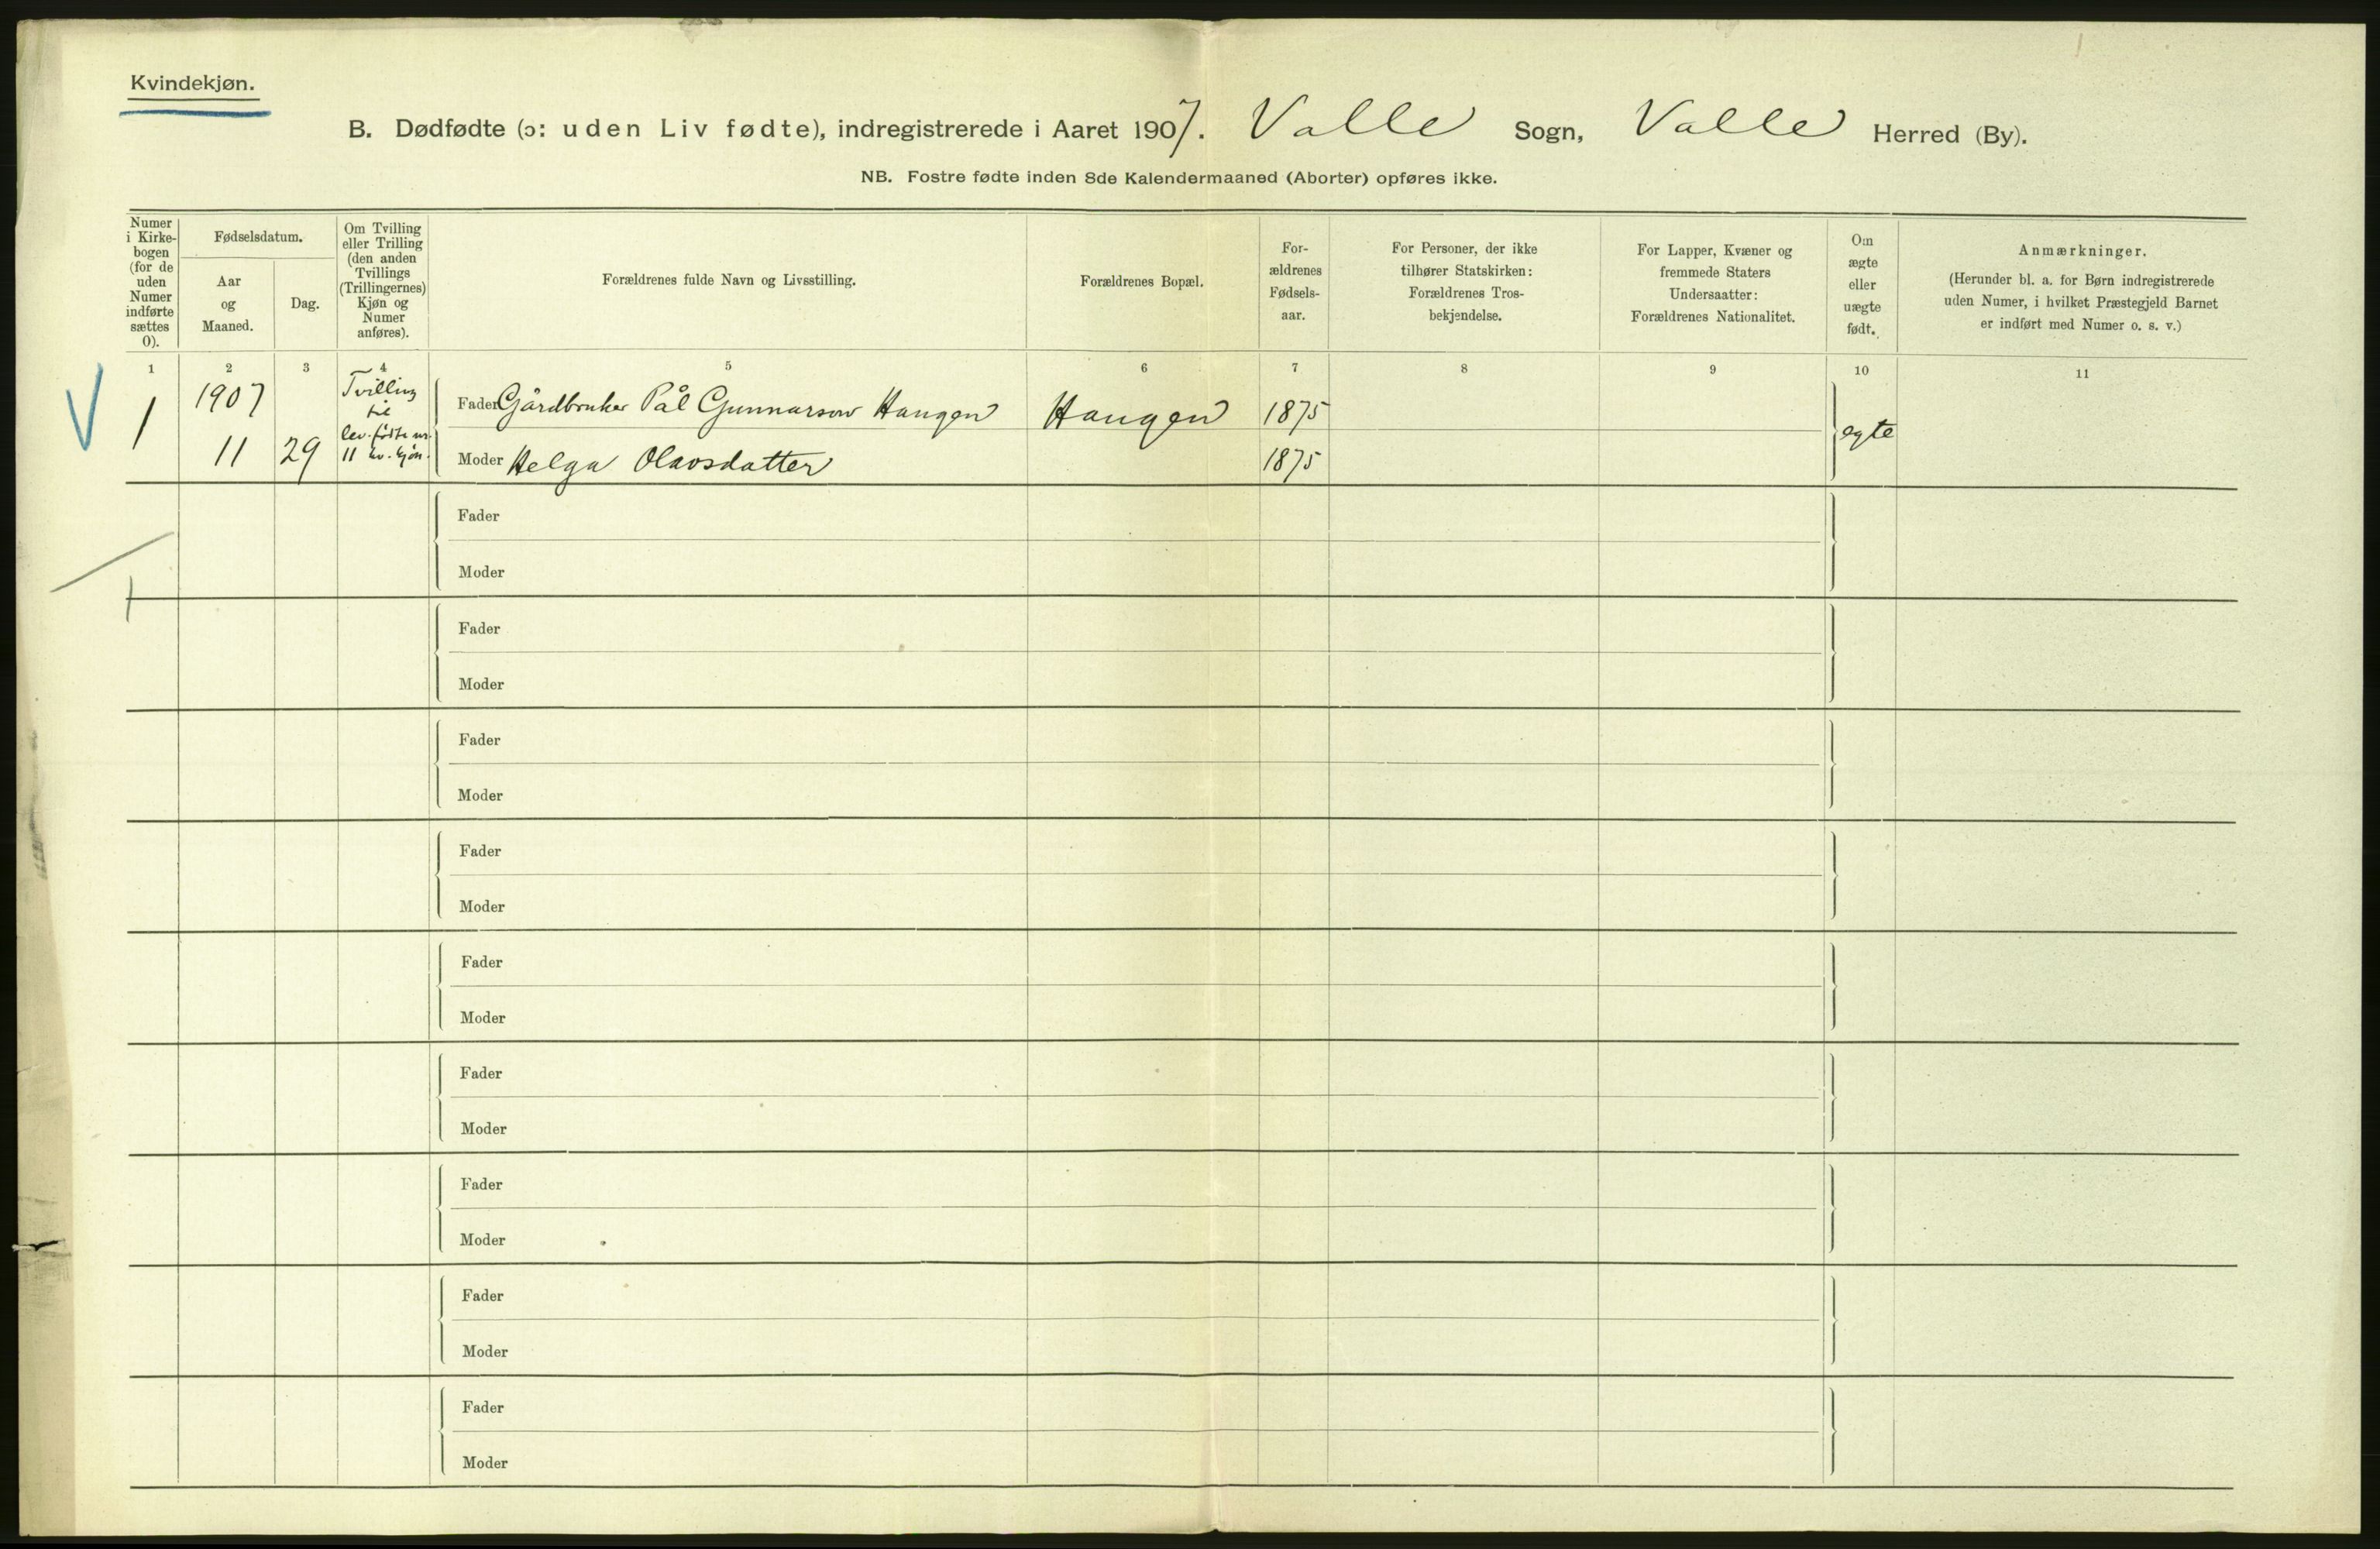 Kvindekjøn.
B. Dødfødte (ɔ: uden Liv fødte), indregistrerede i Aaret 1907. Valle Sogn, Valle Herred (By).
NB. Fostre fødte inden 8de Kalendermaaned (Aborter) opføres ikke.
Numer
i Kirke-
bogen
(for de
uden
Numer
indførte
sættes
0).
Fødselsdatum.
Aar
og
Maaned.
Dag.
Om Tvilling
eller Trilling
(den anden
Tvillings
(Trillingernes)
Kjøn og
Numer
anføres).
Forældrenes fulde Navn og Livsstilling.
Forældrenes Bopæl.
For-
ældrenes
Fødsels-
aar.
For Personer, der ikke
tilhører Statskirken:
Forældrenes Tros-
bekjendelse.
For Lapper, Kvæner og
fremmede Staters
Undersaatter:
Forældrenes Nationalitet.
Om
ægte
eller
uægte
født.
Anmærkninger.
(Herunder bl. a. for Børn indregistrerede
uden Numer, i hvilket Præstegjeld Barnet
er indført med Numer o. s. v.)
1 2 3 4 5 6 7 8 9 10 11
V
1
1907
11 29
Tvilling
til
lev. fødte nr.
11 kv. kjøn.
Fader Gårdbruker Pål Gunnarson Haugen Haugen 1875
Moder Helga Olavsdatter 1875
egte
Fader
Moder
1
Fader
Moder
Fader
Moder
Fader
Moder
Fader
Moder
Fader
Moder
Fader
Moder
Fader
Moder
Fader
Moder